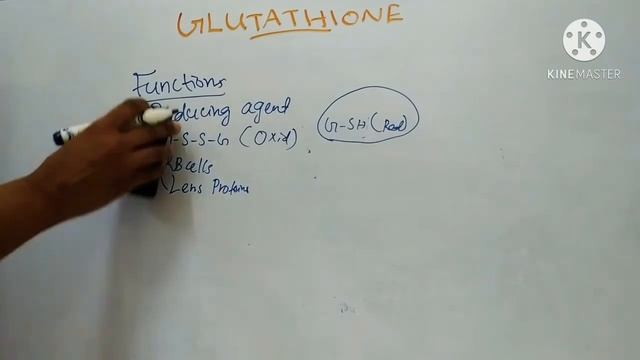 GLUTATHIONE
KINEMASTER
Functions
Reducing agent
G-SH (Red)
-S-S-G (Oxid)
RBcells
(Lens Proteins